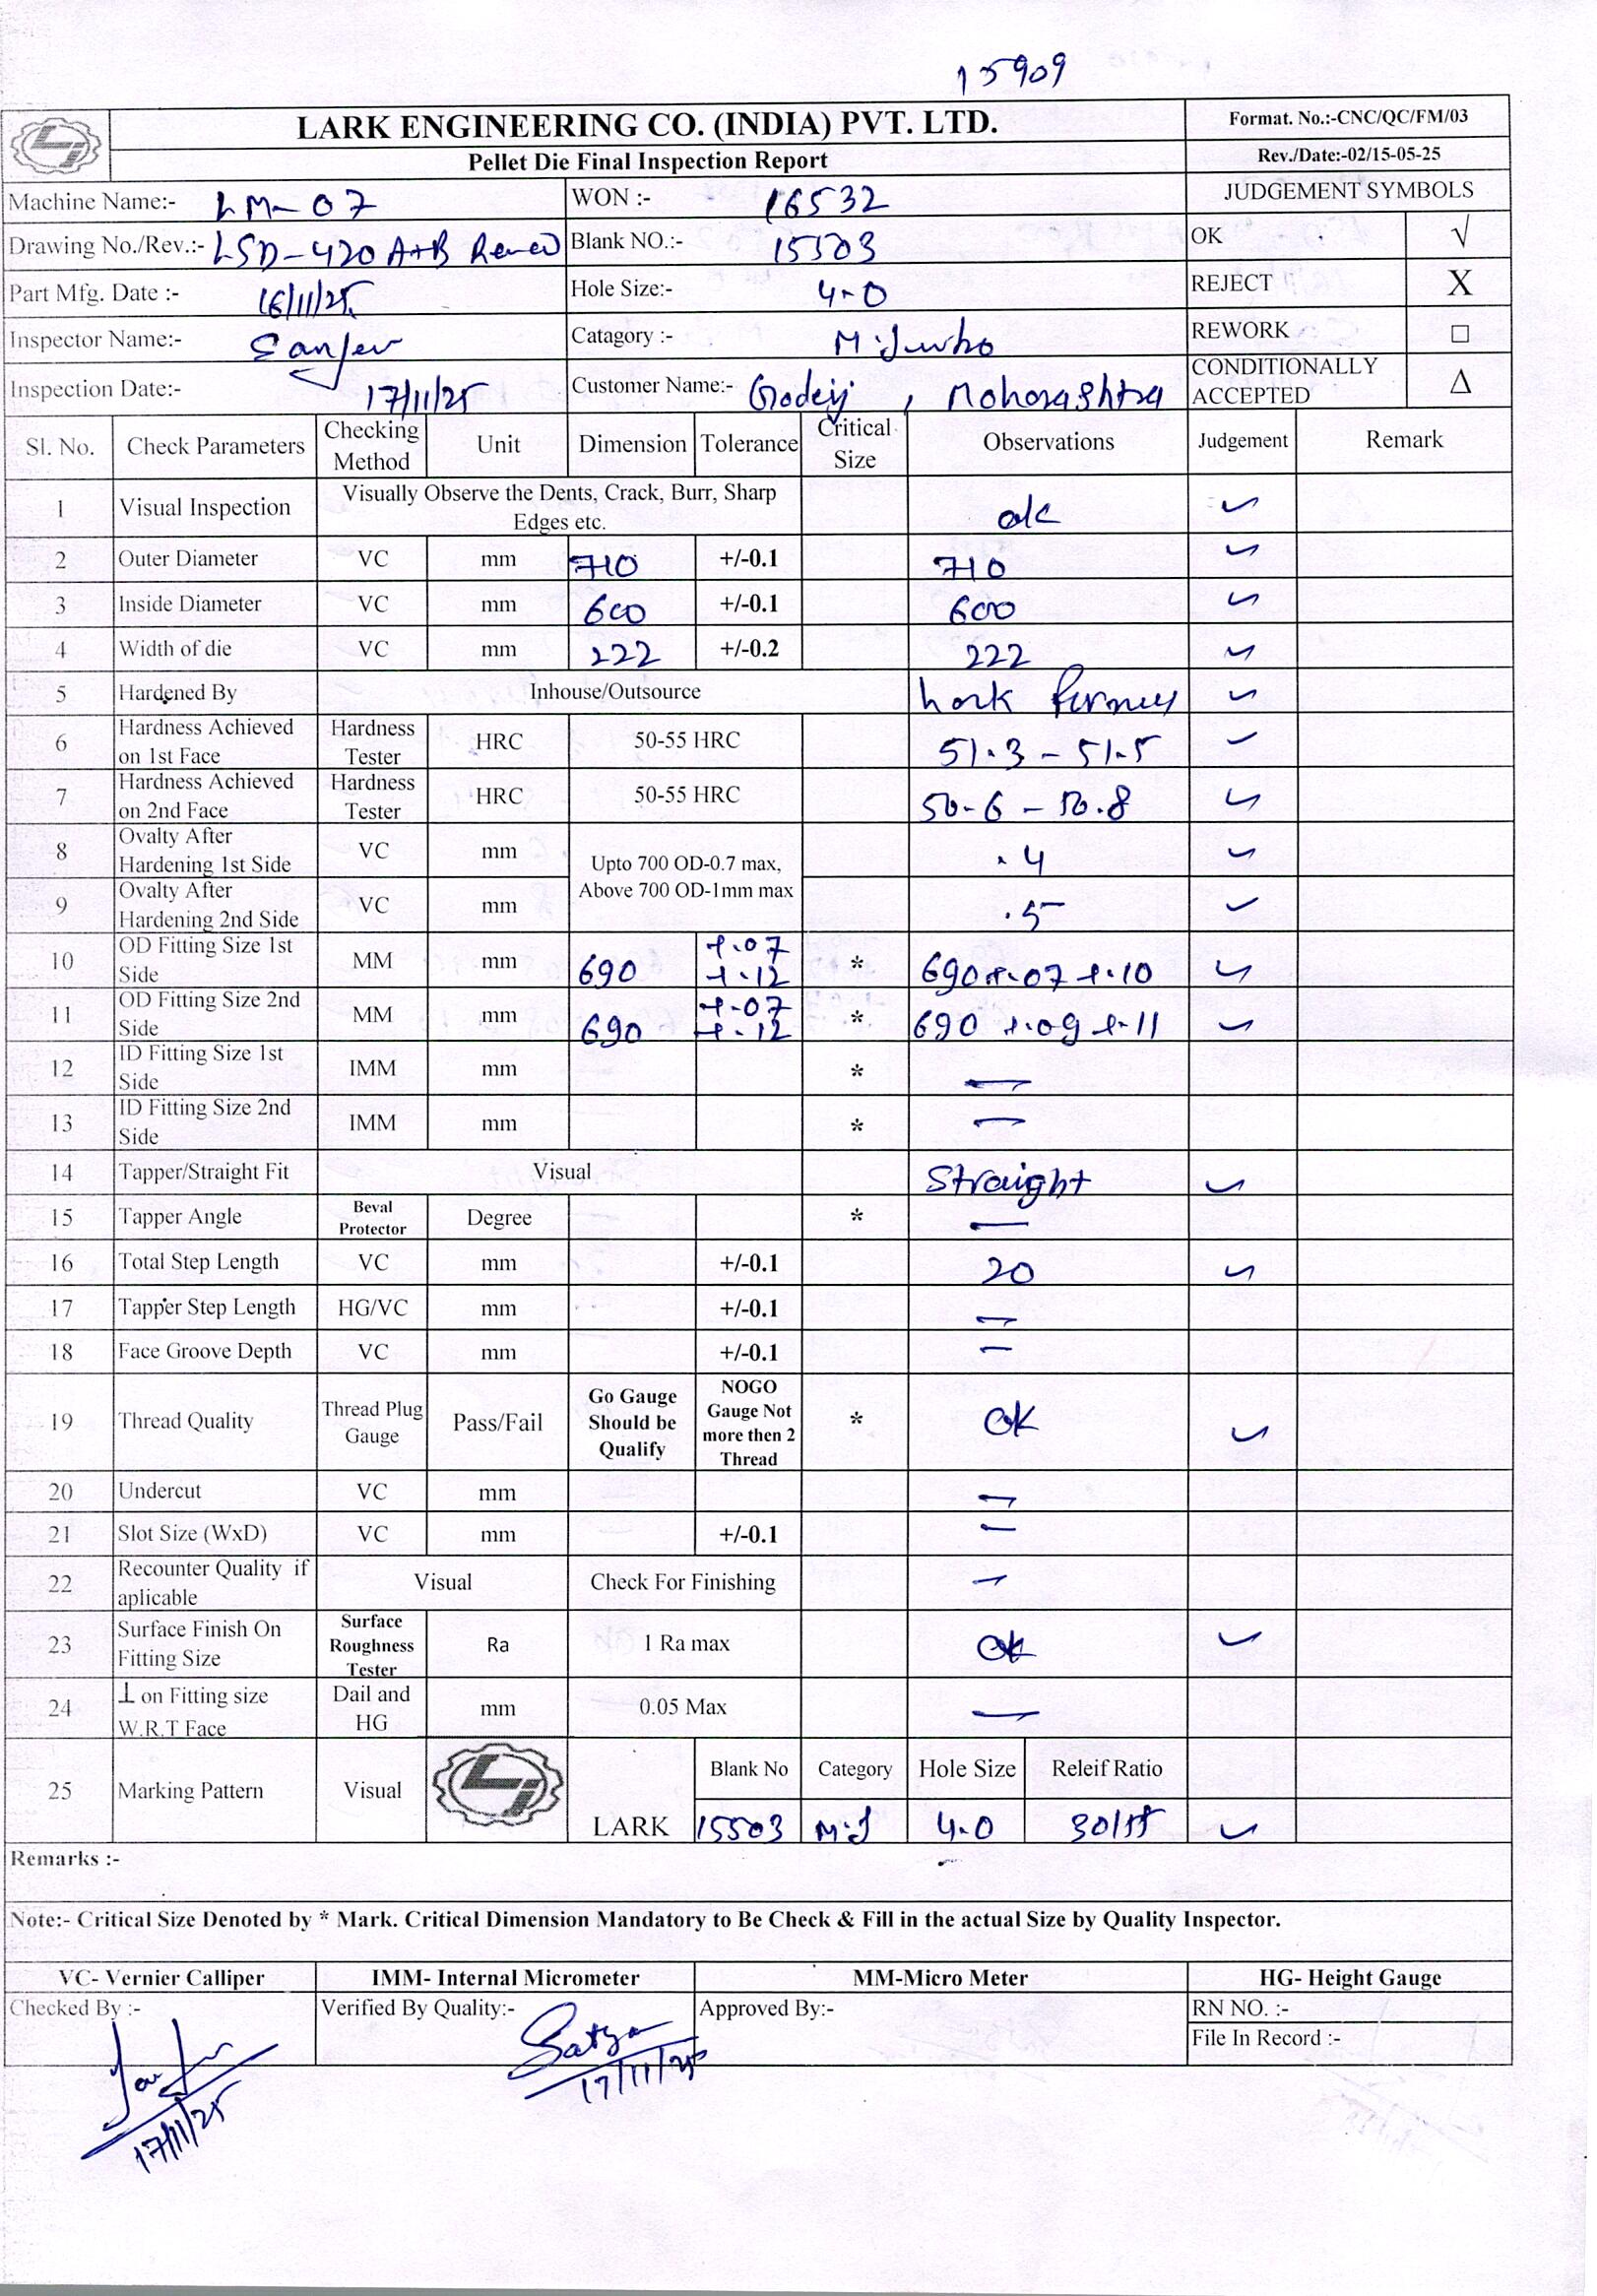 15909
LARK ENGINEERING CO. (INDIA) PVT. LTD.
Format. No.:-CNC/QC/FM/03
Pellet Die Final Inspection Report
Rev./Date:-02/15-05-25
Machine Name:- LM-07 WON :- 16532 JUDGEMENT SYMBOLS
Drawing No./Rev.:- LSD-420 A+B Blank NO.:- 15503 OK √
Part Mfg. Date :- 16/11/25 Hole Size:- 4.0 REJECT X
Inspector Name:- Sanjev Catagory :- M.Jumbo REWORK □
Inspection Date:- 17/11/25 Customer Name:- Godrej, Maharashtra CONDITIONALLY ACCEPTED Δ
Sl. No. Check Parameters Checking Method Unit Dimension Tolerance Critical Size Observations Judgement Remark
1 Visual Inspection Visually Observe the Dents, Crack, Burr, Sharp Edges etc. ok ✓
2 Outer Diameter VC mm 710 +/-0.1 710 ✓
3 Inside Diameter VC mm 600 +/-0.1 600 ✓
4 Width of die VC mm 222 +/-0.2 222 ✓
5 Hardened By Inhouse/Outsource Lark ✓
6 Hardness Achieved on 1st Face Hardness Tester HRC 50-55 HRC 51.3 - 51.5 ✓
7 Hardness Achieved on 2nd Face Hardness Tester HRC 50-55 HRC 50.6 - 50.8 ✓
8 Ovalty After Hardening 1st Side VC mm Upto 700 OD-0.7 max, Above 700 OD-1mm max .4 ✓
9 Ovalty After Hardening 2nd Side VC mm .5 ✓
10 OD Fitting Size 1st Side MM mm 690 +.07 +.12 * 690 +.07 +.10 ✓
11 OD Fitting Size 2nd Side MM mm 690 +.07 +.12 * 690 +.09 +.11 ✓
12 ID Fitting Size 1st Side IMM mm * —
13 ID Fitting Size 2nd Side IMM mm * —
14 Tapper/Straight Fit Visual Straight ✓
15 Tapper Angle Beval Protector Degree * —
16 Total Step Length VC mm +/-0.1 20 ✓
17 Tapper Step Length HG/VC mm +/-0.1 —
18 Face Groove Depth VC mm +/-0.1 —
19 Thread Quality Thread Plug Gauge Pass/Fail Go Gauge Should be Qualify NOGO Gauge Not more then 2 Thread * OK ✓
20 Undercut VC mm —
21 Slot Size (WxD) VC mm +/-0.1 —
22 Recounter Quality if aplicable Visual Check For Finishing —
23 Surface Finish On Fitting Size Surface Roughness Tester Ra 1 Ra max ok ✓
24 ⊥ on Fitting size W.R.T Face Dail and HG mm 0.05 Max —
25 Marking Pattern Visual LARK Blank No Category Hole Size Releif Ratio
15503 M.J 4.0 ✓
Remarks :-
Note:- Critical Size Denoted by * Mark. Critical Dimension Mandatory to Be Check & Fill in the actual Size by Quality Inspector.
VC- Vernier Calliper IMM- Internal Micrometer MM-Micro Meter HG- Height Gauge
Checked By :- Verified By Quality:- Satya Approved By:- RN NO. :-
File In Record :-
17/11/25
17/11/25